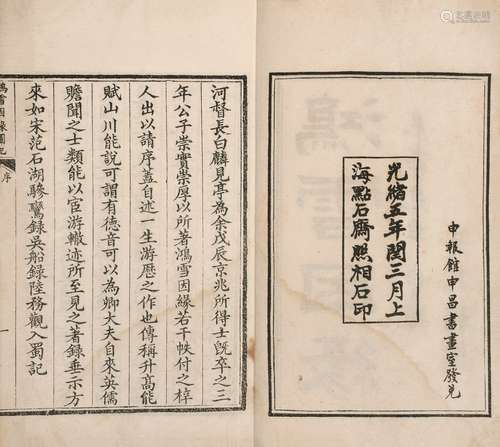 申報館申昌書畫室發兌
光緒五年閏三月上
海點石齋照相石印
河督長白麟見亭為余戊辰京兆所得士旣卒之三
年公子崇實崇厚以所著鴻雪因緣若干帙付之梓
人出以請序蓋自述一生游歷之作也傳稱升高能
賦山川能說可謂有德音可以為卿大夫自來英儒
贍聞之士類能以宦游轍迹所至見之著錄垂示方
來如宋范石湖驂鸞錄吳船錄陸務觀入蜀記
鴻雪因緣圖記
序
一